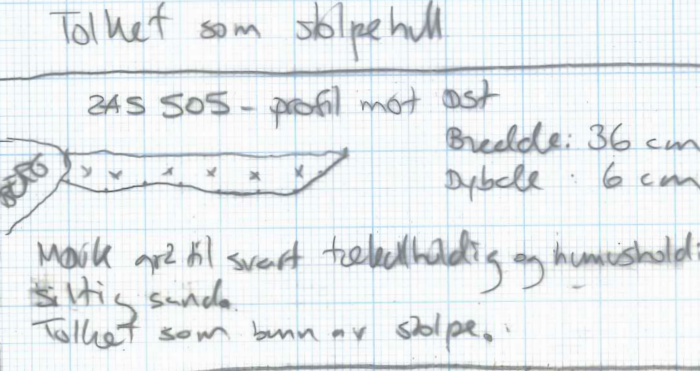 Tolket som stolpehull
245 505 - profil mot øst
Bredde: 36 cm
Dybde : 6 cm
Mørk grå til svart trekullholdig og humusholdi
siltig sand.
Tolket som bunn av stolpe.